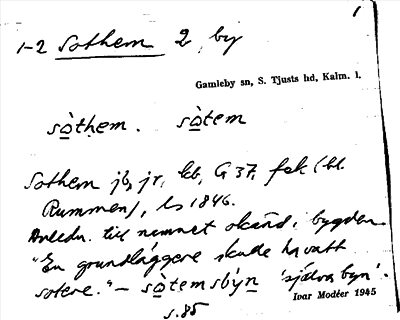 1
1-2 Sothem 2 by
Gamleby sn, S. Tjusts hd, Kalm. l.
sòthem. sòtem
Sothem jb, jr, kb, G 37, fsk (bl.
Rummen), ls 1846.
Anledn. till namnet okänd i bygden.
"En grundläggare skade ha vatt
sotare." – sòtemsbýn 'själva byn'.
Ivar Modéer 1945
s. 85